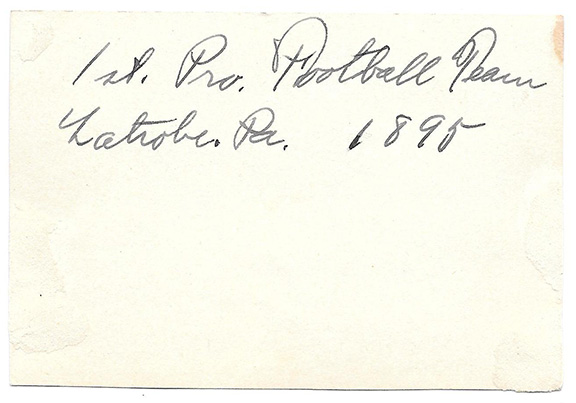 1st. Pro. Football Team
Latrobe. Pa. 1895